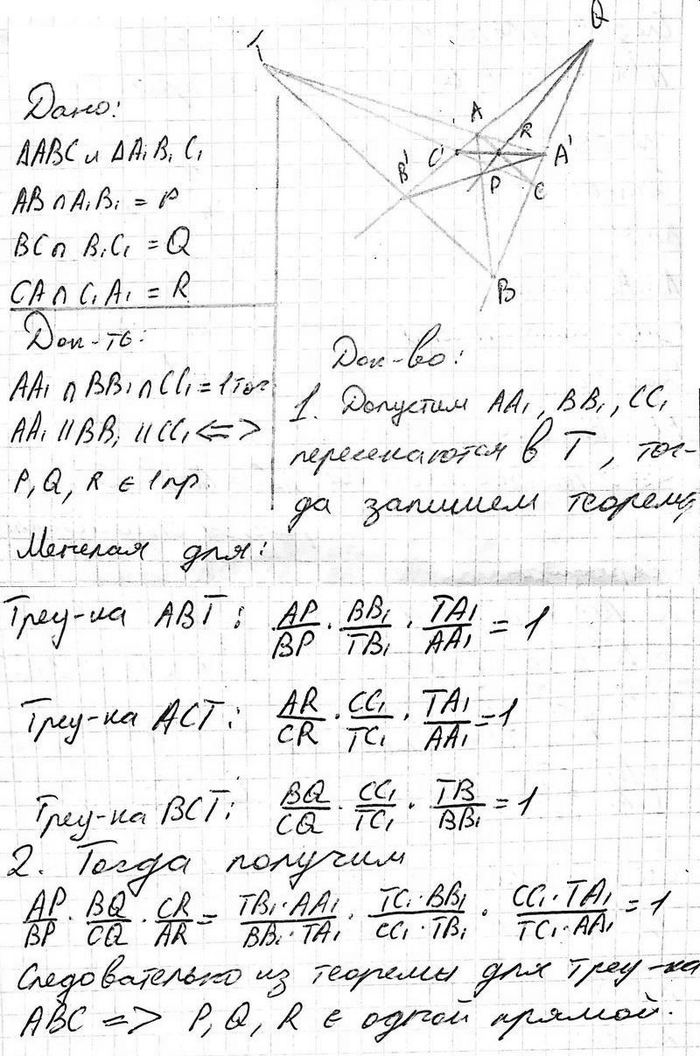 T
Q
A
R
C'
A'
B'
P
C
B
Дано:
ΔABC и ΔA₁B₁C₁
AB ∩ A₁B₁ = P
BC ∩ B₁C₁ = Q
CA ∩ C₁A₁ = R
Док-ть:
AA₁ ∩ BB₁ ∩ CC₁ = 1 точ
AA₁ || BB₁ || CC₁ <=>
P, Q, R ∈ 1 пр.
Док-во:
1. Допустим AA₁, BB₁, CC₁
пересекаются в T, тог-
да запишем теорему
Менелая для:
Треу-ка ABT: AP/BP · BB₁/TB₁ · TA₁/AA₁ = 1
Треу-ка ACT: AR/CR · CC₁/TC₁ · TA₁/AA₁ = 1
Треу-ка BCT: BQ/CQ · CC₁/TC₁ · TB/BB₁ = 1
2. Тогда получим
AP/BP · BQ/CQ · CR/AR = TB₁·AA₁/BB₁·TA₁ · TC₁·BB₁/CC₁·TB₁ · CC₁·TA₁/TC₁·AA₁ = 1
Следовательно из теоремы для треу-ка
ABC => P, Q, R ∈ одной прямой.